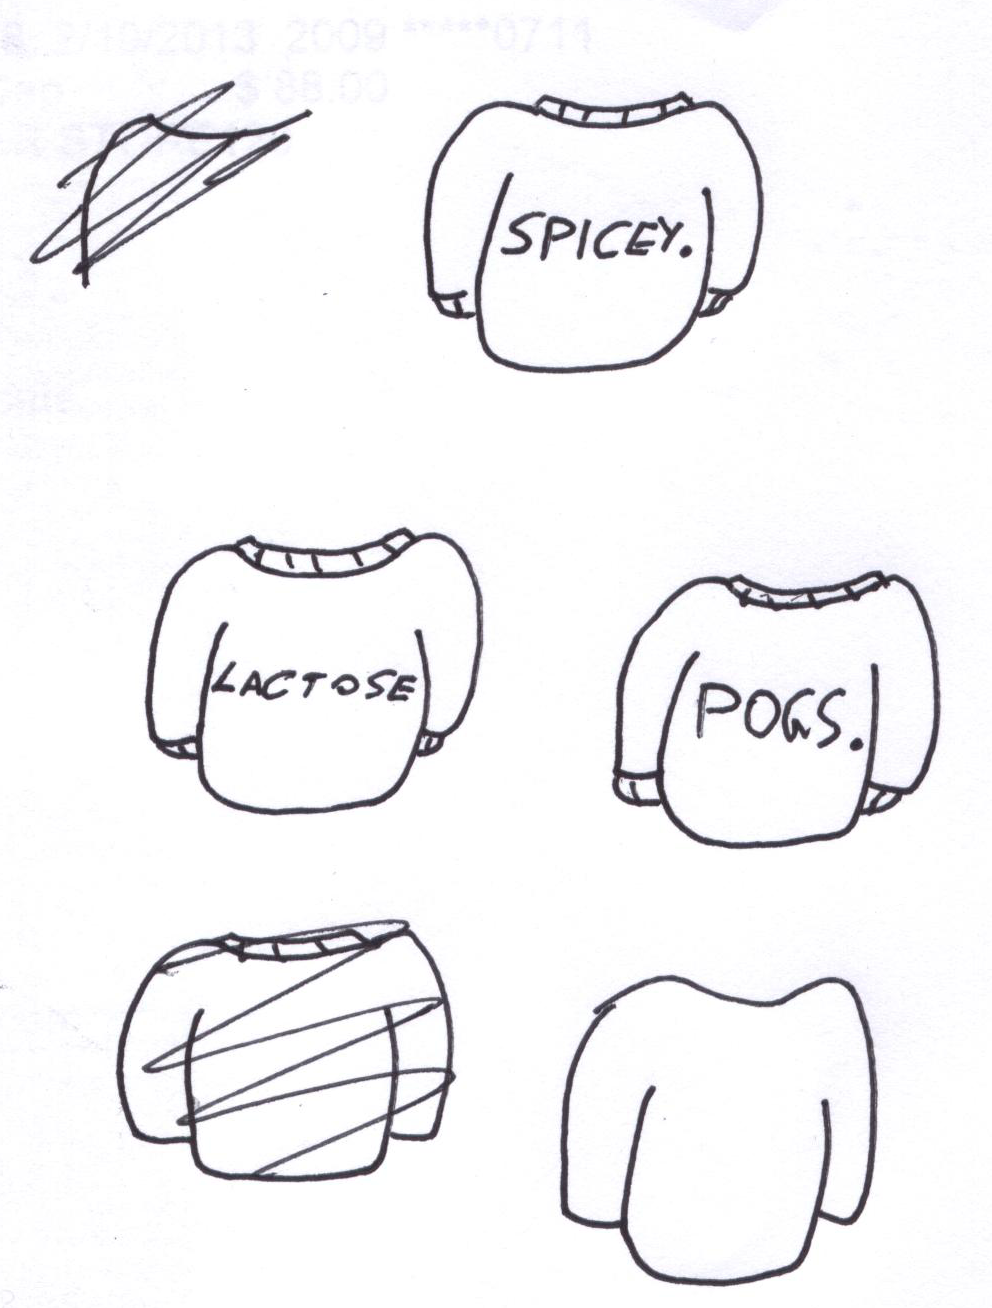 2009 *****0711
$ 88.00
SPICEY.
LACTOSE
POGS.